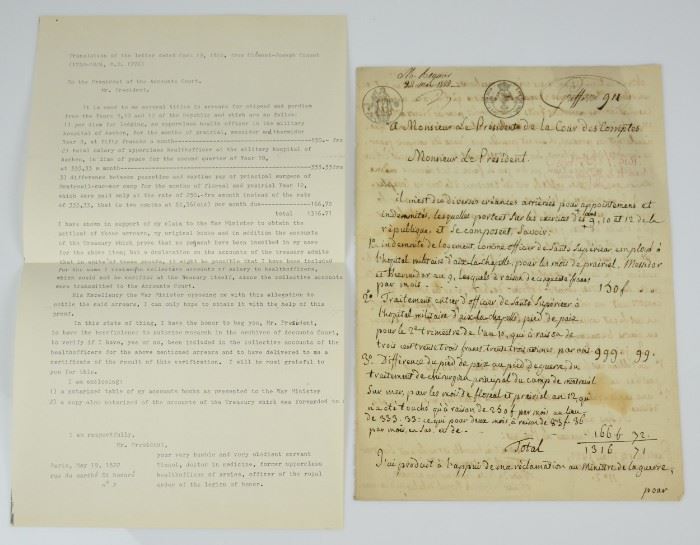 Translation of the letter dated
To the President of the Accounts Court,
Mr. President,
It is owed to me several titles in arrears for stipend and perdiem
from the Years 9,10 and 12 of the Republic and which are as follow:
1) per diem for lodging, as superieur health officer in the military
hospital of Aachen, for the months of prairial, messidor and thermidor
Year 9, at fifty francs a month
2) total salary of superieur healthofficer at the military hospital of
Aachen, in time of peace for the second quarter of Year 10,
at 333,33 a month
3) difference between peacetime and wartime pay of principal surgeon of
camp for the months of floreal and prairial Year 12,
which were paid only at the rate of 250.- frs amonth instead of the rate
of 333,33, that is two months at per month due 166,72
total 1316.71
I have shown in support of my claim to the War Minister to obtain the
settled of those arrears, my original books and in addition the accounts
of the Treasury which prove that no payment have been inscribed in my name
for the above item; but a declaration on the accounts of the treasury admits
that in spite of these proofs, it might be possible that I have been included
for the same in collective accounts of salary to healthofficers,
which could not be verified at the Treasury itself, since the collective accounts
were transmitted to the Accounts Court.
His Excellency the War Minister opposing me with this allegation to
settle the said arrears, I can only hope to obtain it with the help of this
proof.
In this state of thing, I have the honor to beg you, Mr. President,
to have the research in the archives of Accounts Court,
to verify if I have, yes or no, been included in the collective accounts of the
healthofficers for the above mentioned arrears and to have delivered to me a
certificate of the result of this verification. I will be most grateful to
you for this.
I am enclosing:
1) a notarized table of my accounts books as presented to the War Minister
2) a copy also notarized of the accounts of the Treasury which was forwarded to
I am respectfully,
Mr. President,
your very humble and very obedient servant
Paris, May 19, 1820
doctor in medicine, former superieur
rue du marché St honoré
healthofficer of armies, officer of the royal
n° 7
order of the legion of honor.
911
a Monsieur Le Président de la Cour des Comptes.
Monsieur Le Président.
il m'est dû diverses créances arriérées pour appointemens et
indemnités, lesquelles portent sur les exercices des ans 9, 10 et 12 de la
république, et se composent, Savoir:
1° indemnité de logement comme officier de Santé Supérieur employé à
l'hôpital militaire d'aix-la-chapelle, pour les mois de prairial, Messidor
et thermidor an 9, lesquels à raison de cinquante francs
par mois. 150 f
2° Traitement entier d'officier de Santé Supérieur à
l'hôpital militaire d'aix-la-chapelle, pied de paix
pour le 2e trimestre de l'an 10, qui à raison de
trois cent trente trois francs trente trois centimes par mois 999. 99.
3° Différence du pied de paix au pied de guerre, du
traitement de chirurgien principal du camp de montreuil
Sur mer, pour les mois de floréal et prairial an 12, qui
n'a été touché qu'à raison de 250 f par mois au lieu
de 333.33: ce qui pour deux mois, à raison de 83 f 36
par mois, 166 f 72.
Total 1316 71
J'ai produit à l'appui de ma réclamation au Ministère de la guerre,
pour